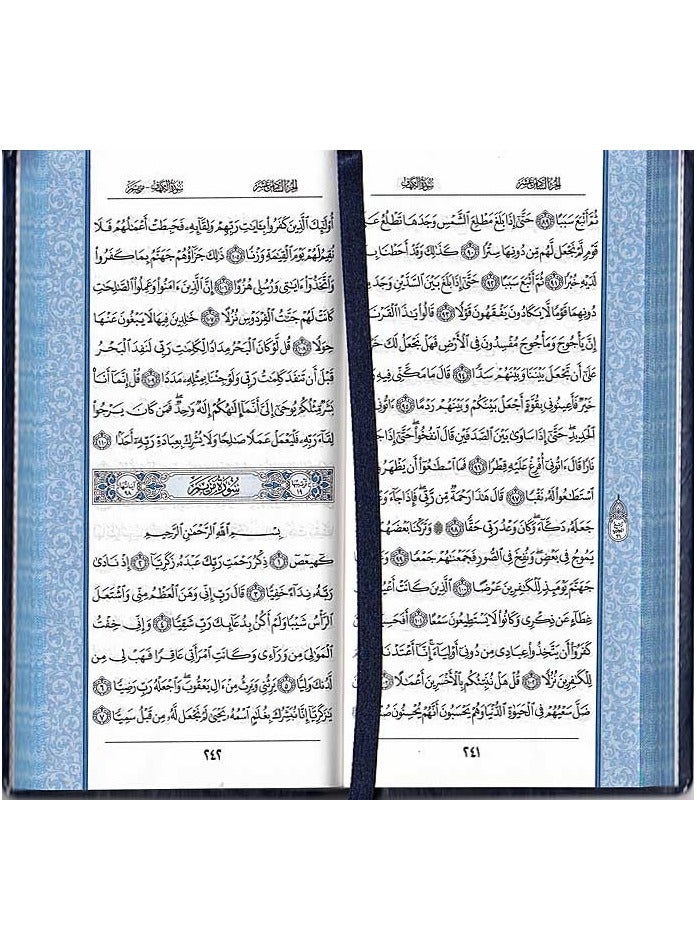 الجزء السادس عشر سورة الكهف
ثُمَّ أَتْبَعَ سَبَبًا ٨٩ حَتَّىٰٓ إِذَا بَلَغَ مَطْلِعَ ٱلشَّمْسِ وَجَدَهَا تَطْلُعُ
قَوْمٍ لَّمْ نَجْعَل لَّهُم مِّن دُونِهَا سِتْرًا ٩٠ كَذَٰلِكَ وَقَدْ أَحَطْنَا
لَدَيْهِ خُبْرًا ٩١ ثُمَّ أَتْبَعَ سَبَبًا ٩٢ حَتَّىٰٓ إِذَا بَلَغَ بَيْنَ ٱلسَّدَّيْنِ وَجَدَ
دُونِهِمَا قَوْمًا لَّا يَكَادُونَ يَفْقَهُونَ قَوْلًا ٩٣ قَالُوا۟ يَٰذَا
إِنَّ يَأْجُوجَ وَمَأْجُوجَ مُفْسِدُونَ فِى ٱلْأَرْضِ فَهَلْ نَجْعَلُ لَكَ
عَلَىٰٓ أَن تَجْعَلَ بَيْنَنَا وَبَيْنَهُمْ سَدًّا ٩٤ قَالَ مَا مَكَّنِّى فِيهِ
خَيْرٌ فَأَعِينُونِى بِقُوَّةٍ أَجْعَلْ بَيْنَكُمْ وَبَيْنَهُمْ رَدْمًا ٩٥ ءَاتُونِى
ٱلْحَدِيدِ ۖ حَتَّىٰٓ إِذَا سَاوَىٰ بَيْنَ ٱلصَّدَفَيْنِ قَالَ ٱنفُخُوا۟ ۖ حَتَّىٰٓ إِذَا
نَارًا قَالَ ءَاتُونِىٓ أُفْرِغْ عَلَيْهِ قِطْرًا ٩٦ فَمَا ٱسْطَٰعُوٓا۟ أَن يَظْهَرُوهُ
ٱسْتَطَٰعُوا۟ لَهُۥ نَقْبًا ٩٧ قَالَ هَٰذَا رَحْمَةٌ مِّن رَّبِّى ۖ فَإِذَا جَآءَ
جَعَلَهُۥ دَكَّآءَ ۖ وَكَانَ وَعْدُ رَبِّى حَقًّا ٩٨ ۞ وَتَرَكْنَا بَعْضَهُمْ
يَمُوجُ فِى بَعْضٍ ۖ وَنُفِخَ فِى ٱلصُّورِ فَجَمَعْنَٰهُمْ جَمْعًا ٩٩
جَهَنَّمَ يَوْمَئِذٍ لِّلْكَٰفِرِينَ عَرْضًا ١٠٠ ٱلَّذِينَ كَانَتْ
غِطَآءٍ عَن ذِكْرِى وَكَانُوا۟ لَا يَسْتَطِيعُونَ سَمْعًا ١٠١ أَفَحَسِبَ
كَفَرُوٓا۟ أَن يَتَّخِذُوا۟ عِبَادِى مِن دُونِىٓ أَوْلِيَآءَ ۚ إِنَّآ أَعْتَدْنَا
لِلْكَٰفِرِينَ نُزُلًا ١٠٢ قُلْ هَلْ نُنَبِّئُكُم بِٱلْأَخْسَرِينَ أَعْمَٰلًا ١٠٣
ضَلَّ سَعْيُهُمْ فِى ٱلْحَيَوٰةِ ٱلدُّنْيَا وَهُمْ يَحْسَبُونَ أَنَّهُمْ يُحْسِنُونَ
٢٤١
الجزء السادس عشر سورة الكهف - مريم
أُو۟لَٰٓئِكَ ٱلَّذِينَ كَفَرُوا۟ بِـَٔايَٰتِ رَبِّهِمْ وَلِقَآئِهِۦ فَحَبِطَتْ أَعْمَٰلُهُمْ فَلَا
نُقِيمُ لَهُمْ يَوْمَ ٱلْقِيَٰمَةِ وَزْنًا ١٠٥ ذَٰلِكَ جَزَآؤُهُمْ جَهَنَّمُ بِمَا كَفَرُوا۟
وَٱتَّخَذُوٓا۟ ءَايَٰتِى وَرُسُلِى هُزُوًا ١٠٦ إِنَّ ٱلَّذِينَ ءَامَنُوا۟ وَعَمِلُوا۟ ٱلصَّٰلِحَٰتِ
كَانَتْ لَهُمْ جَنَّٰتُ ٱلْفِرْدَوْسِ نُزُلًا ١٠٧ خَٰلِدِينَ فِيهَا لَا يَبْغُونَ عَنْهَا
حِوَلًا ١٠٨ قُل لَّوْ كَانَ ٱلْبَحْرُ مِدَادًا لِّكَلِمَٰتِ رَبِّى لَنَفِدَ ٱلْبَحْرُ
قَبْلَ أَن تَنفَدَ كَلِمَٰتُ رَبِّى وَلَوْ جِئْنَا بِمِثْلِهِۦ مَدَدًا ١٠٩ قُلْ إِنَّمَآ أَنَا۠
بَشَرٌ مِّثْلُكُمْ يُوحَىٰٓ إِلَىَّ أَنَّمَآ إِلَٰهُكُمْ إِلَٰهٌ وَٰحِدٌ ۖ فَمَن كَانَ يَرْجُوا۟
لِقَآءَ رَبِّهِۦ فَلْيَعْمَلْ عَمَلًا صَٰلِحًا وَلَا يُشْرِكْ بِعِبَادَةِ رَبِّهِۦٓ أَحَدًۢا ١١٠
ترتيبها ١٩ سُورَةُ مَرْيَمَ آياتها ٩٨
بِسْمِ ٱللَّهِ ٱلرَّحْمَٰنِ ٱلرَّحِيمِ
كٓهيعٓصٓ ١ ذِكْرُ رَحْمَتِ رَبِّكَ عَبْدَهُۥ زَكَرِيَّآ ٢ إِذْ نَادَىٰ
رَبَّهُۥ نِدَآءً خَفِيًّا ٣ قَالَ رَبِّ إِنِّى وَهَنَ ٱلْعَظْمُ مِنِّى وَٱشْتَعَلَ
ٱلرَّأْسُ شَيْبًا وَلَمْ أَكُنۢ بِدُعَآئِكَ رَبِّ شَقِيًّا ٤ وَإِنِّى خِفْتُ
ٱلْمَوَٰلِىَ مِن وَرَآءِى وَكَانَتِ ٱمْرَأَتِى عَاقِرًا فَهَبْ لِى مِن
لَّدُنكَ وَلِيًّا ٥ يَرِثُنِى وَيَرِثُ مِنْ ءَالِ يَعْقُوبَ ۖ وَٱجْعَلْهُ رَبِّ رَضِيًّا ٦
يَٰزَكَرِيَّآ إِنَّا نُبَشِّرُكَ بِغُلَٰمٍ ٱسْمُهُۥ يَحْيَىٰ لَمْ نَجْعَل لَّهُۥ مِن قَبْلُ سَمِيًّا ٧
٢٤٢